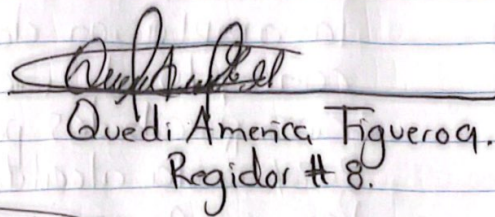 Quedi America Figueroa.
Regidor # 8.